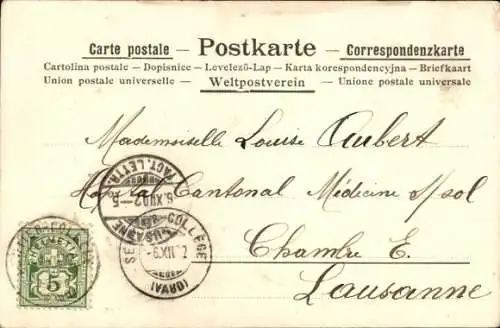 Carte postale — Postkarte — Correspondenzkarte
Cartolina postale – Dopisnice – Levelező-Lap – Karta korespondencyjna – Briefkaart
Union postale universelle – Weltpostverein – Unione postale universale
Mademoiselle Louise Aubert
Hôpital Cantonal Médecine s/sol
Chambre E.
Lausanne
FACT. LETTR.
6.XII.02-5
LAUSANNE
COLLÈGE
-6.XII.02
(VAUD)
HELVETIA
5